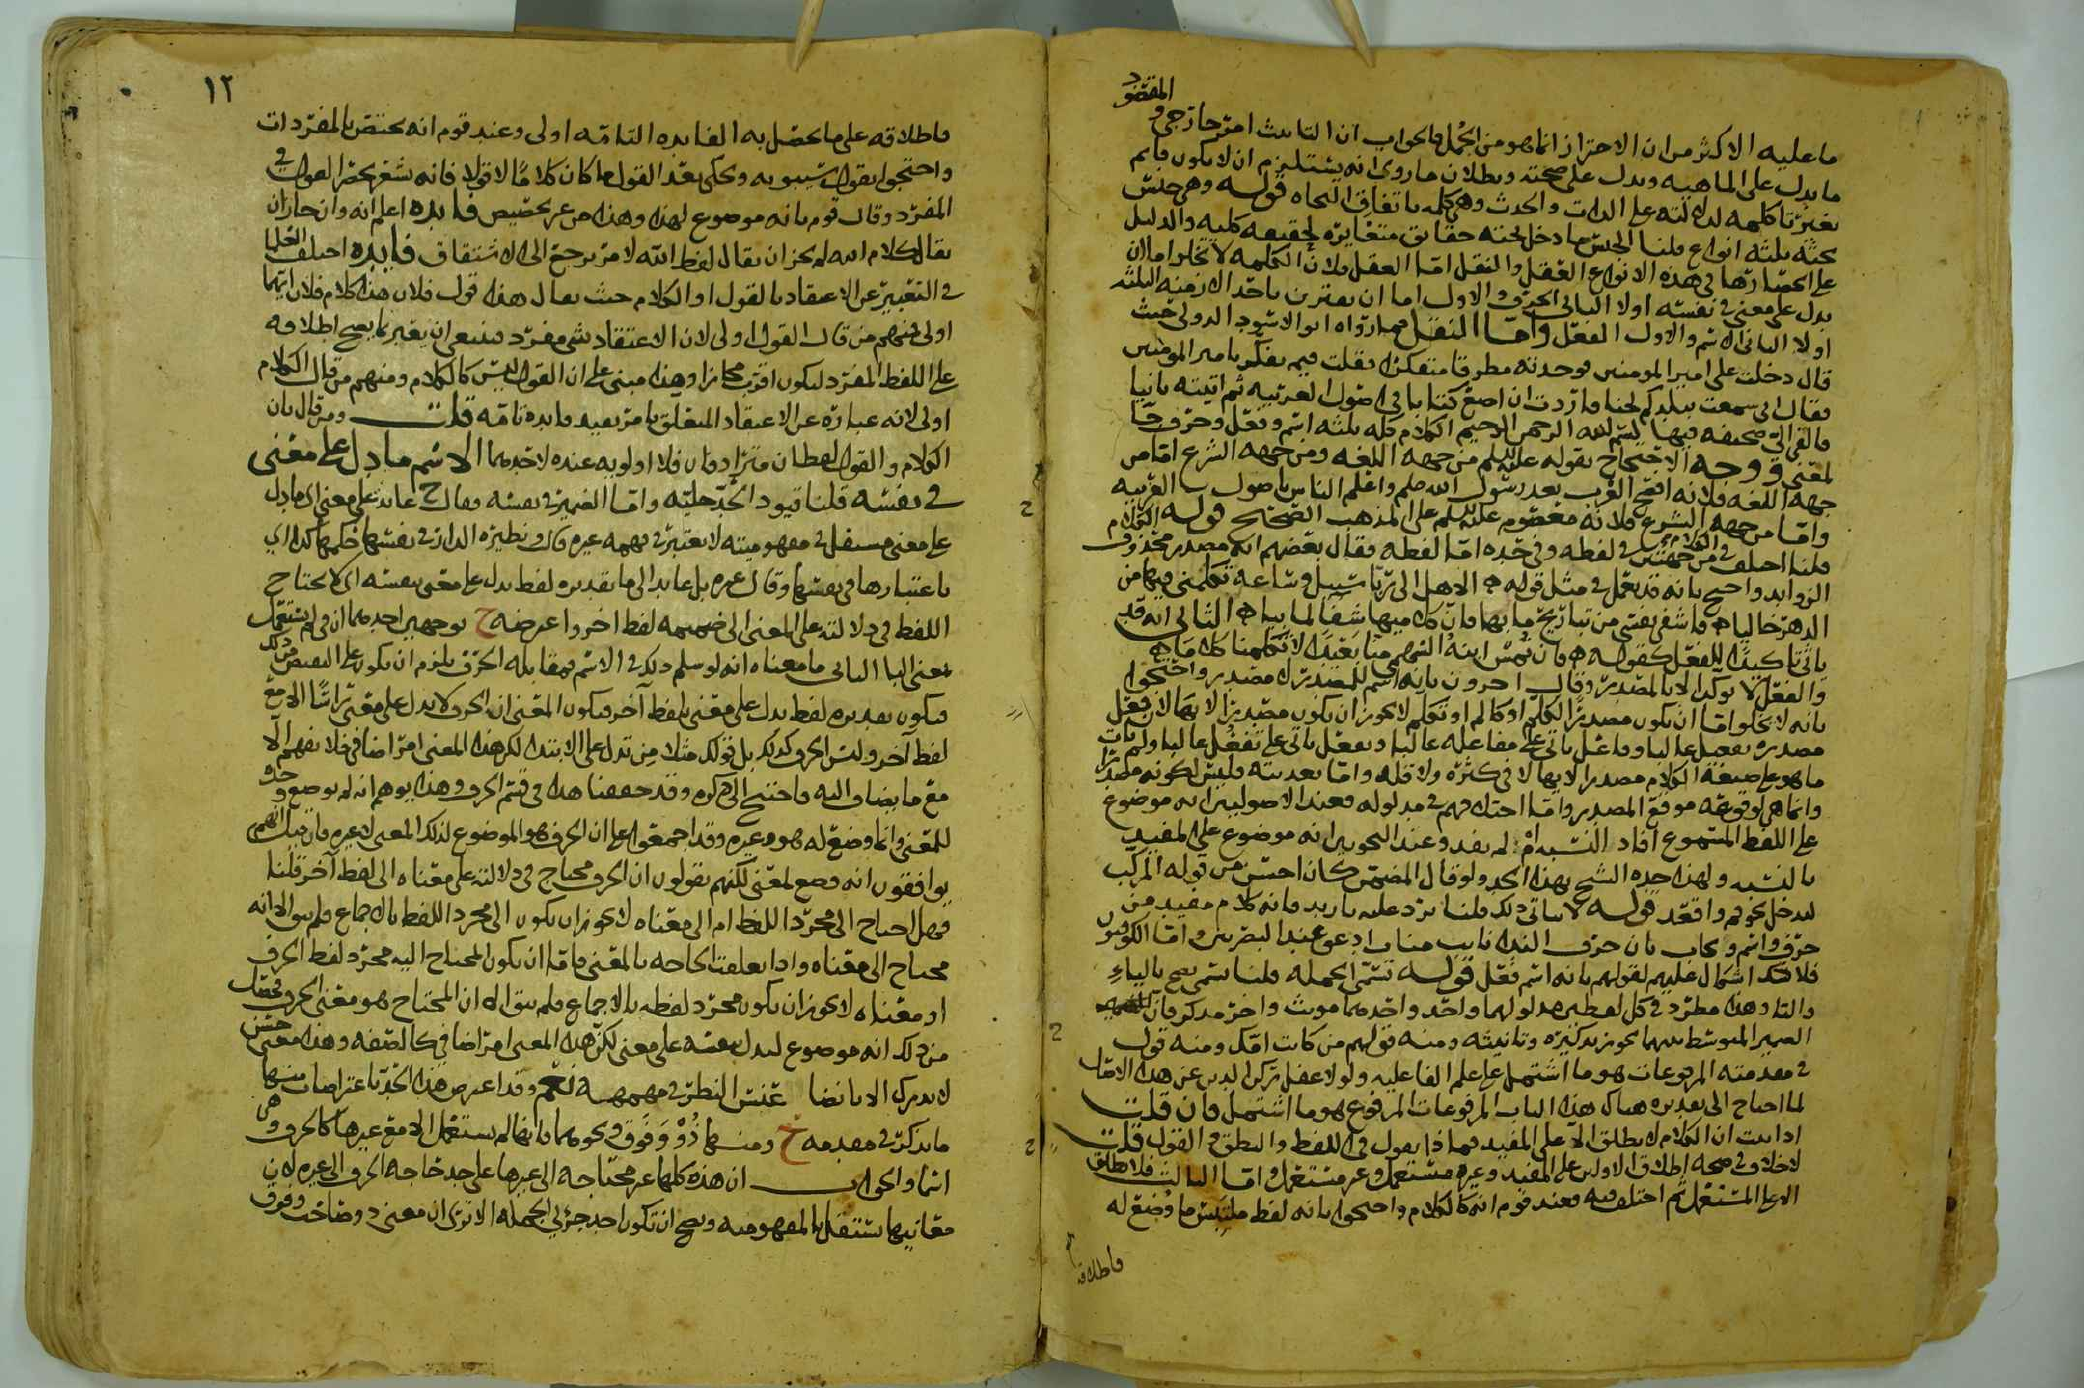 المقصود
ما عليه الاكثر من ان الاحتراز انما هو من الجمل والجواب ان التانيث امر خارجي و
ما يدل على الماهية ويدل على صحته وبطلان ما روي انه يستلزم ان لا يكون قايم
بغير تا كلمه لدلالته على الذات والحدث وهي كلمه باتفاق النحاه قوله وهي جنس
تحته ثلثه انواع قلنا الجنس ما دخل تحته حقايق متغايره لحقيقه كليه والدليل
على انحصارها في هذه الانواع العقل والنقل امّا العقل فلان الكلمه لا تخلو اما ان
يدل على معنى في نفسه اولا الثاني الحرف والاول اما ان يقترن باحد الازمنه الثلثه
اولا الثاني الاسم والاول الفعل وامّا النقل فما رواه ابو الاسود الدولي حيث
قال دخلت على امير المومنين فوجدته مطرقا متفكرًا فقلت فيم تفكر يا امير المومنين
فقال اني سمعت ببلدكم لحنا فاردت ان اصنع كتابا في اصول العربيه ثم اتيته ثانيا
فالقى الي صحيفه فيها بسم الله الرحمن الرحيم الكلام كله ثلثه اسم وفعل وحرف جا
لمعنى ووجه الاحتجاج بقوله عليه السلم من جهه اللغه ومن جهه الشرع امّا من
جهه اللغه فلانه افصح العرب بعد رسول الله صلعم واعلم الناس باصول العربيه
وامّا من جهه الشرع فلانه معصوم عليه السلم على المذهب الصحيح قوله الكلام
قلنا اختلف في الكلام من جهتين في لفظه وفي حده امّا لفظه فقال بعضهم انه مصدر محذوف
الزوايد واحتج بانه قد يعمل في مثل قوله الا هل الى ريّا سبيل وساعه تكلمني فيها من
الدهر خاليا فاشفي نفسي من تباريح ما بها فان كلاميها شفا لما بيا الثاني انه قد
ياتي تاكيدًا للفعل كقوله فان تمس ابنة السهمي منا بعيدًا لا تكلمنا كلاما
والفعل لا يوكد الا بالمصدر وقال اخرون بانه اسم للمصدر لا مصدر واحتجوا
بانه لا يخلو امّا ان يكون مصدرًا لكلّم او كالم او تكلم لا يجوز ان يكون مصدرًا لايها لان فعّل
مصدره تفعيل غالبا وفاعل ياتي على مفاعله غالبا وتفعّل ياتي على تفعُّل غالبا ولم يات
ما هو على صيغة الكلام مصدرا لايها لا في كثره ولا قله وامّا تعديته فليس لكونه مصدرًا
وانما هي لوقوعه موقع المصدر وامّا اختلافهم في مدلوله فعند الاصوليين انه موضوع
على اللفظ المسموع افاد النسبه ام لم يفد وعند النحويين انه موضوع على المفيد
بالنسبه ولهذا حده الشيخ بهذا الحد ولو قال المتضمن كان احسن من قوله المركب
ليدخل نحو قم واقعد قوله لا يتاتى ذلك قلنا يرد عليه يا زيد فانه كلام مفيد من
حرف واسم ويجاب بان حرف الندا نايب مناب ادعو عند البصريين وامّا الكوفيون
فلا اشكال عليهم لقولهم بانه اسم فعل قوله تسمى الجمله قلنا تسمى يصح بالياء
والتاء وهذا مطرد في كل لفظين مدلولهما واحد واحدهما مونث واخر مذكر فان
الضمير المتوسط بينهما يجوز تذكيره وتانيثه ومنه قولهم من كانت امك ومنه قول
في مقدمته المرفوعات هو ما اشتمل على علم الفاعليه ولولا
لما احتاج الى تقديره هناك هذا الباب المرفوعات المرفوع هو ما اشتمل فان قلت
اذا ثبت ان الكلام لا يطلق الّا على المفيد فماذا يقول في اللفظ والنطق والقول قلت
لا خلاف في صحه اطلاق الاولين على المفيد وغيره مستعمل وغير مستعمل وامّا الثالث فلا يطلق
الا على المستعمل ثم اختلف فيه فعند قوم انه كالكلام واحتجوا بانه لفظ ما وُضع له
فاطلاقه
١٢
فاطلاقه على ما يحصل به الفايده التامه اولى وعند قوم انه يختص بالمفردات
واحتجوا بقول سيبويه ويحكى بعد القول ما كان كلامًا لا قولا فانه يشعر بحصر القول في
المفرد وقال قوم بانه موضوع لهذا وهذا من غير تخصيص فايده اعلم انه وان جاز ان
يقال كلام الله لم يجز ان يقال لفظ الله لامر يرجع الى الاشتقاق فايده اختلف العلما
في التعبير عن الاعتقاد بالقول او الكلام حيث يقال هذا قول فلان هذا كلام فلان ايهما
اولى فمنهم من قال القول اولى لان الاعتقاد شي مفرد فينبغي ان يعبر بما يصح اطلاقه
على اللفظ المفرد ليكون اقرب مجازا وهذا مبني على ان القول ليس كالكلام ومنهم من قال الكلام
اولى لانه عباره عن الاعتقاد المتعلق بامر يفيد فايده تامه قلت ومن قال بان
الكلام والقول لفظان مترادفان فلا اولويه عنده لاحدهما الاسم ما دل على معنى
في نفسه قلنا قيود الحد جليّه وامّا الضمير في نفسه فقال ح عايد على معنى اي ما دل
على معنى مستقل في مفهوميته لا يعتبر في فهمه غيره قال ونظيره الدار في نفسها حكمها كذا اي
باعتبارها في نفسها وقال غيره بل عايد الى ما تقديره لفظ يدل على معنى بنفسه اي لا يحتاج
اللفظ في دلالته على المعنى الى ضميمه لفظ اخر واعترضه ح بوجهين احدهما ان في لم تستعمل
بمعنى البا الثاني ما معناه انه لو سلم ذلك في الاسم فمقابله الحرف يلزم ان يكون على النقيض من ذلك
فيكون تقديره لفظ يدل على معنى بلفظ آخر فيكون المعنى ان الحرف لا يدل على معنى راسًا الا مع
لفظ آخر وليس الحرف كذلك بل قولك مثلا مِن تدل على الابتدا لكن هذا المعنى امر اضافي فلا يفهم الّا
مع ما يضاف اليه فاحتيج الى ذكره وقد حققنا هذا في قسم الحرف وهذا يوهم انه لم يوضع حرف
للمعنى وانما وضع له هو وغيره وقد اجمعوا على ان الحرف هو الموضوع لذلك المعنى لا غيره فان قيل انهم
يوافقون انه وضع لمعنى لكنهم يقولون ان الحرف محتاج في دلالته على معناه الى لفظ آخر قلنا
فهل احتاج الى مجرّد اللفظ ام الى معناه لا يجوز ان يكون الى مجرد اللفظ بالاجماع فلم يبق الا انه
محتاج الى معناه واذا تعلقت الحاجه بالمعنى فامّا ان يكون المحتاج اليه مجرّد لفظ الحرف
او معناه لا يجوز ان يكون مجرّد لفظه بالاجماع فلم يبق الا ان المحتاج هو معنى الحرف فحصل
من ذلك انه موضوع ليدل بنفسه على معنى لكن هذا المعنى امر اضافي كالصفه وهذا معنى حسن
لا يدرك الا بانضا النظر نعم وقد اعترض هذا الحد باعتراضات منها
ما يذكر في مقدمه ح ومنها ذُوْ وَفَوق ونحوهما فانها لم يستعمل الا مع غيرها كالحرف وهي
اسما والجواب ان هذه كلها غير محتاجه الى غيرها على حد حاجه الحرف الى غيره لان
معانيها تستقل بالمفهوميه ويصح ان تكون احد جزئي الجمله الا ترى ان معنى ذو صاحب وفوق